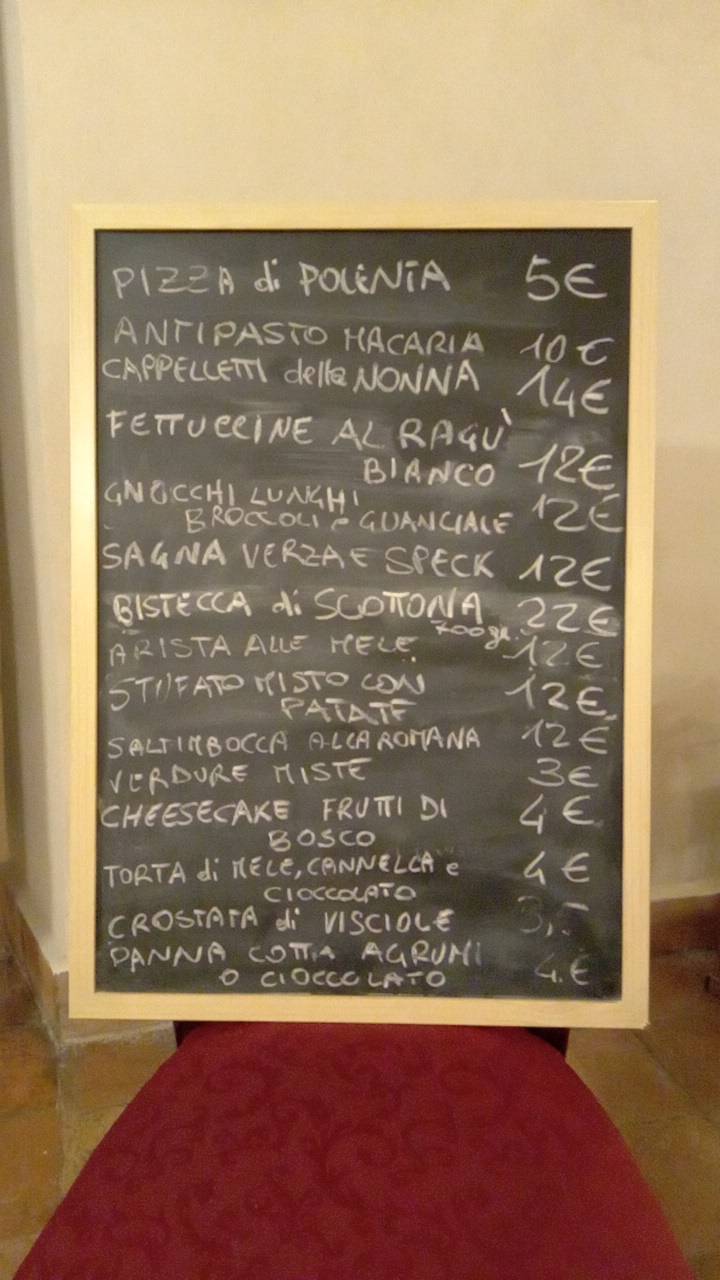 PIZZA di POLENTA 5€
ANTIPASTO MACARIA 10€
CAPPELLETTI della NONNA 14€
FETTUCCINE AL RAGU'
BIANCO 12€
GNOCCHI LUNGHI
BROCCOLI e GUANCIALE 12€
SAGNA VERZA E SPECK 12€
BISTECCA di SCOTTONA 22€
700gr.
ARISTA ALLE MELE 12€
STUFATO MISTO CON 12€
PATATE
SALTIMBOCCA ALLA ROMANA 12€
VERDURE MISTE 3€
CHEESECAKE FRUTTI DI 4€
BOSCO
TORTA di MELE, CANNELLA e 4€
CIOCCOLATO
CROSTATA di VISCIOLE
PANNA COTTA AGRUMI 4€
O CIOCCOLATO